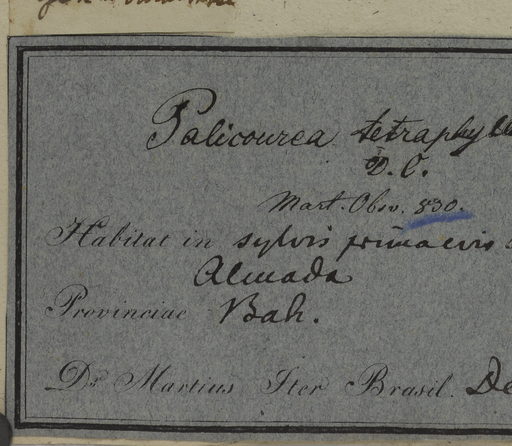 Palicourea tetraphylla
D.C.
Mart. Obsv. 830.
Habitat in sylvis primaevis
Almada
Provinciae Bah.
Dr Martius Iter Brasil. De